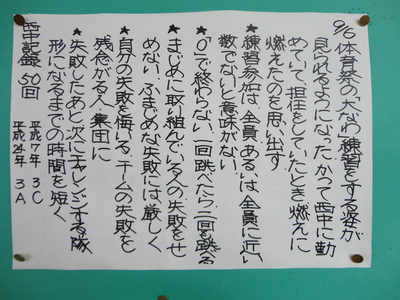 9/6 体育祭の大なわ練習をする姿が
見られるようになった。かつて西中に勤
めていて、担任をしていたとき、燃えに
燃えたのを思い出す
★練習参加は、全員、あるいは、全員に近い
数でないと意味がない。
★"0"で終わらない。一回跳べたら、二回を跳べる
★まじめに取り組んでいる人の失敗をせ
めない。ふまじめな失敗には厳しく
★自分の失敗を悔いる、チームの失敗を
残念がる人、集団に
★失敗したあと、次にチャレンジする隊
形になるまでの時間を短く
西中記録 50回 平成7年 3C
平成24年 3A